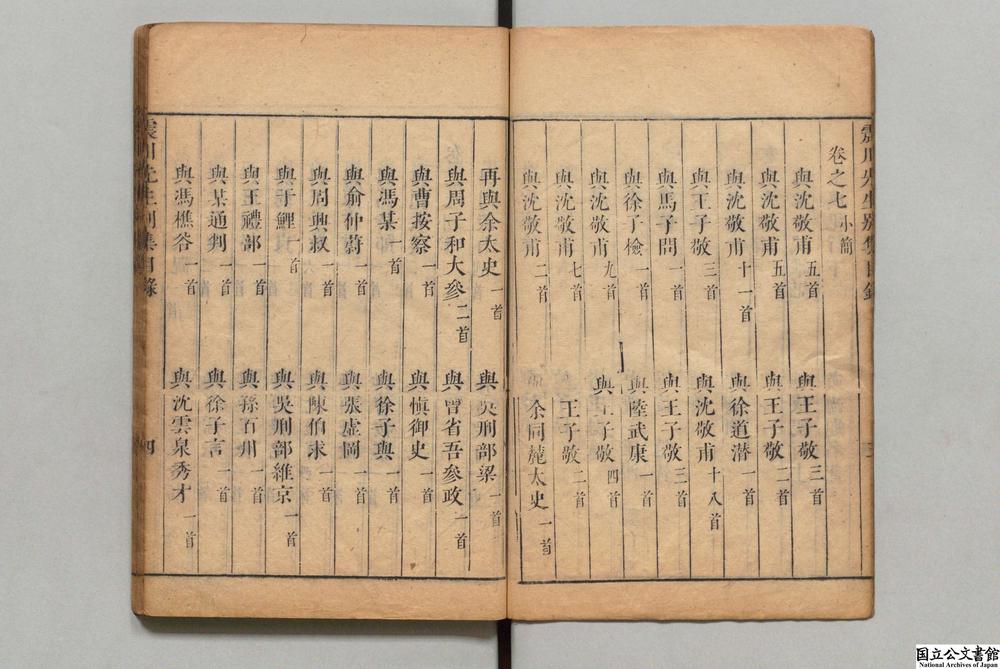 震川先生別集目錄
卷之七 小簡
與沈敬甫 五首 與王子敬 三首
與沈敬甫 五首 與王子敬 一首
與沈敬甫 十一首 與徐道潛 一首
與王子敬 三首 與沈敬甫 十八首
與馬子問 一首 與王子敬 三首
與徐子檢 一首 與陸武康 一首
與沈敬甫 九首 與王子敬 四首
與沈敬甫 七首 王子敬 二首
與沈敬甫 二首 余同麓太史 一首
三
再與余太史 一首 與吳刑部梁 一首
與周子和大參 二首 與曾省吾參政 一首
與曹按察 一首 與慎御史 一首
與馮某 一首 與徐子與 一首
與俞仲蔚 一首 與張虛岡 一首
與周興叔 一首 與陳伯求 一首
與于鯉 一首 與吳刑部維京 一首
與王禮部 一首 與孫百川 一首
與某通判 一首 與徐子言 一首
與馮樵谷 一首 與沈雲泉秀才 一首
震川先生別集目錄
四
国立公文書館
National Archives of Japan